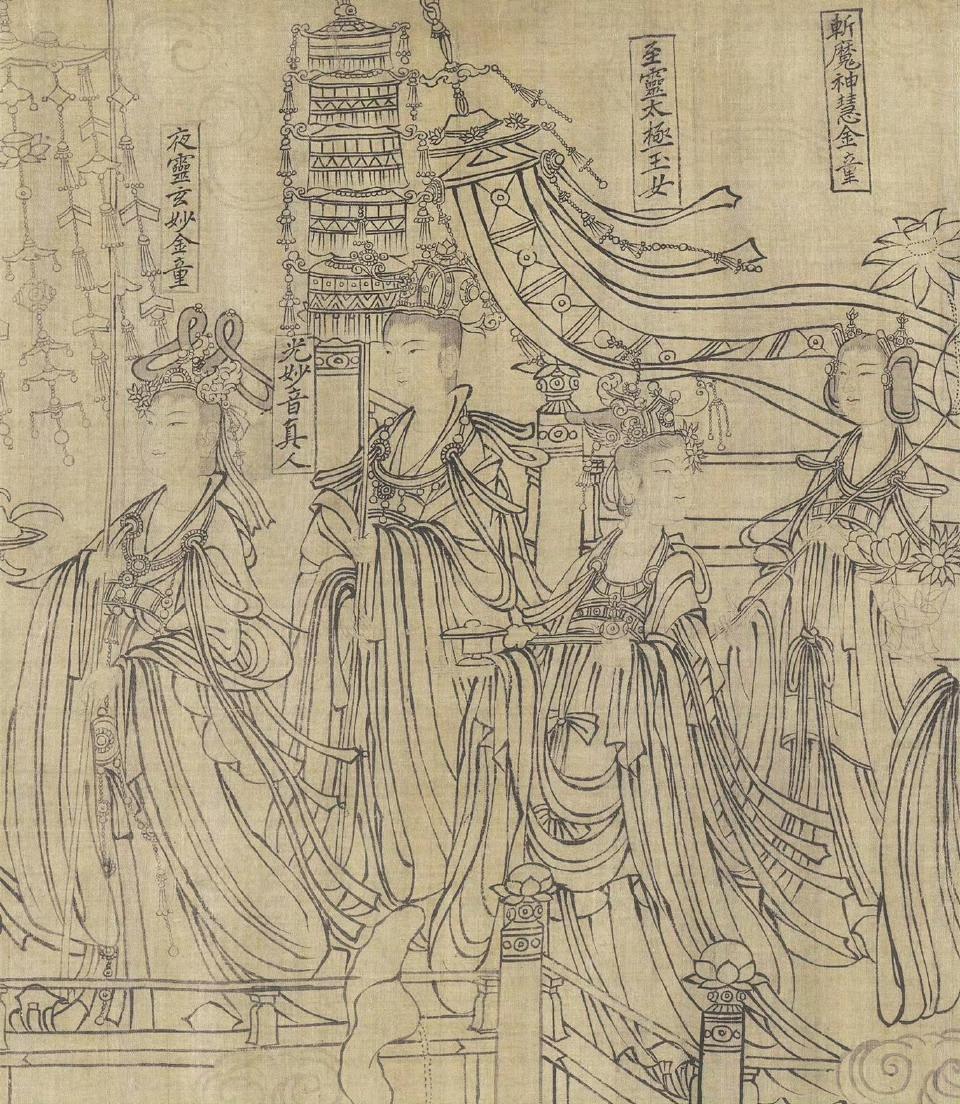 斬魔神慧金童
至靈太極玉女
光妙音真人
夜靈玄妙金童